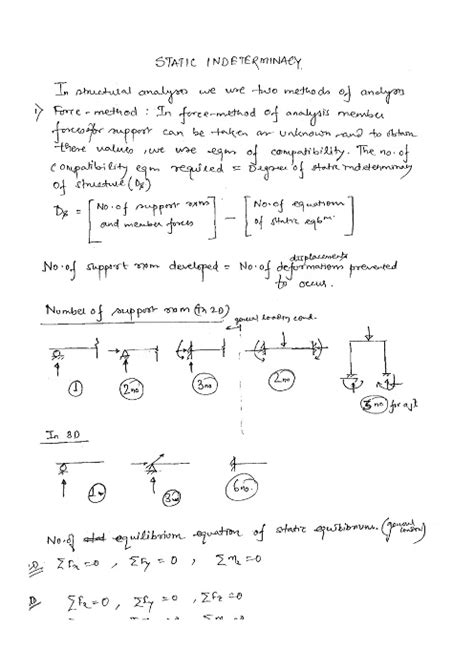 STATIC INDETERMINACY
In structural analysis we use two methods of analysis
1) Force-method : In force-method of analysis member
forces or support can be taken as unknown and to obtain
these values, we use eqn of compatibility. The no. of
compatibility eqn required = Degree of static indeterminacy
of structure (Ds)
Ds = [No. of support rxns and member forces] - [No. of equations of static eqbm.]
displacements
No. of support rxn developed = No. of deformations prevented
to occur.
Number of support rxn (In 2D)
general loading cond.
1 2no 3no 2no 3no for a jt
In 3D
1no 3no 6no.
No. of equilibrium equation of static equilibrium. (general loading)
2D ΣFx=0 , ΣFy=0 , Σmz=0
D ΣFx=0, ΣFy=0, ΣFz=0